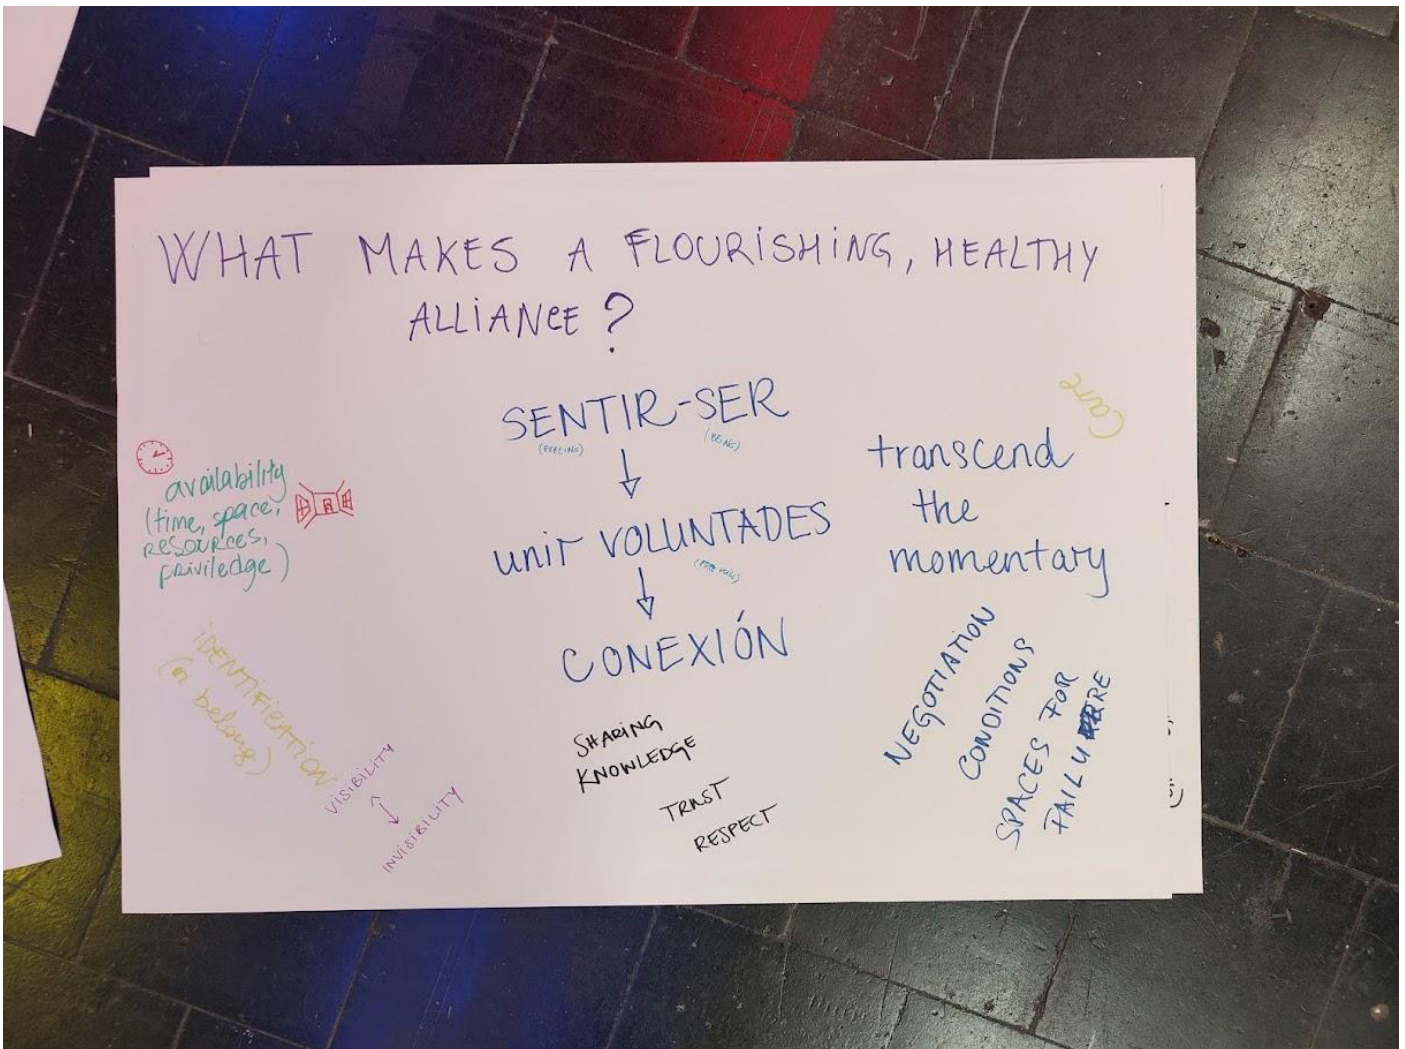 WHAT MAKES A FLOURISHING, HEALTHY
ALLIANCE?
SENTIR-SER
(FEELING)
(BEING)
unir VOLUNTADES
CONEXIÓN
Care
transcend
the
momentary
availability
(time, space,
RESOURCES,
priviledge)
IDENTIFICATION
(or belong)
VISIBILITY
INVISIBILITY
SHARING
KNOWLEDGE
TRUST
RESPECT
NEGOTIATION
CONDITIONS
SPACES FOR
FAILURE